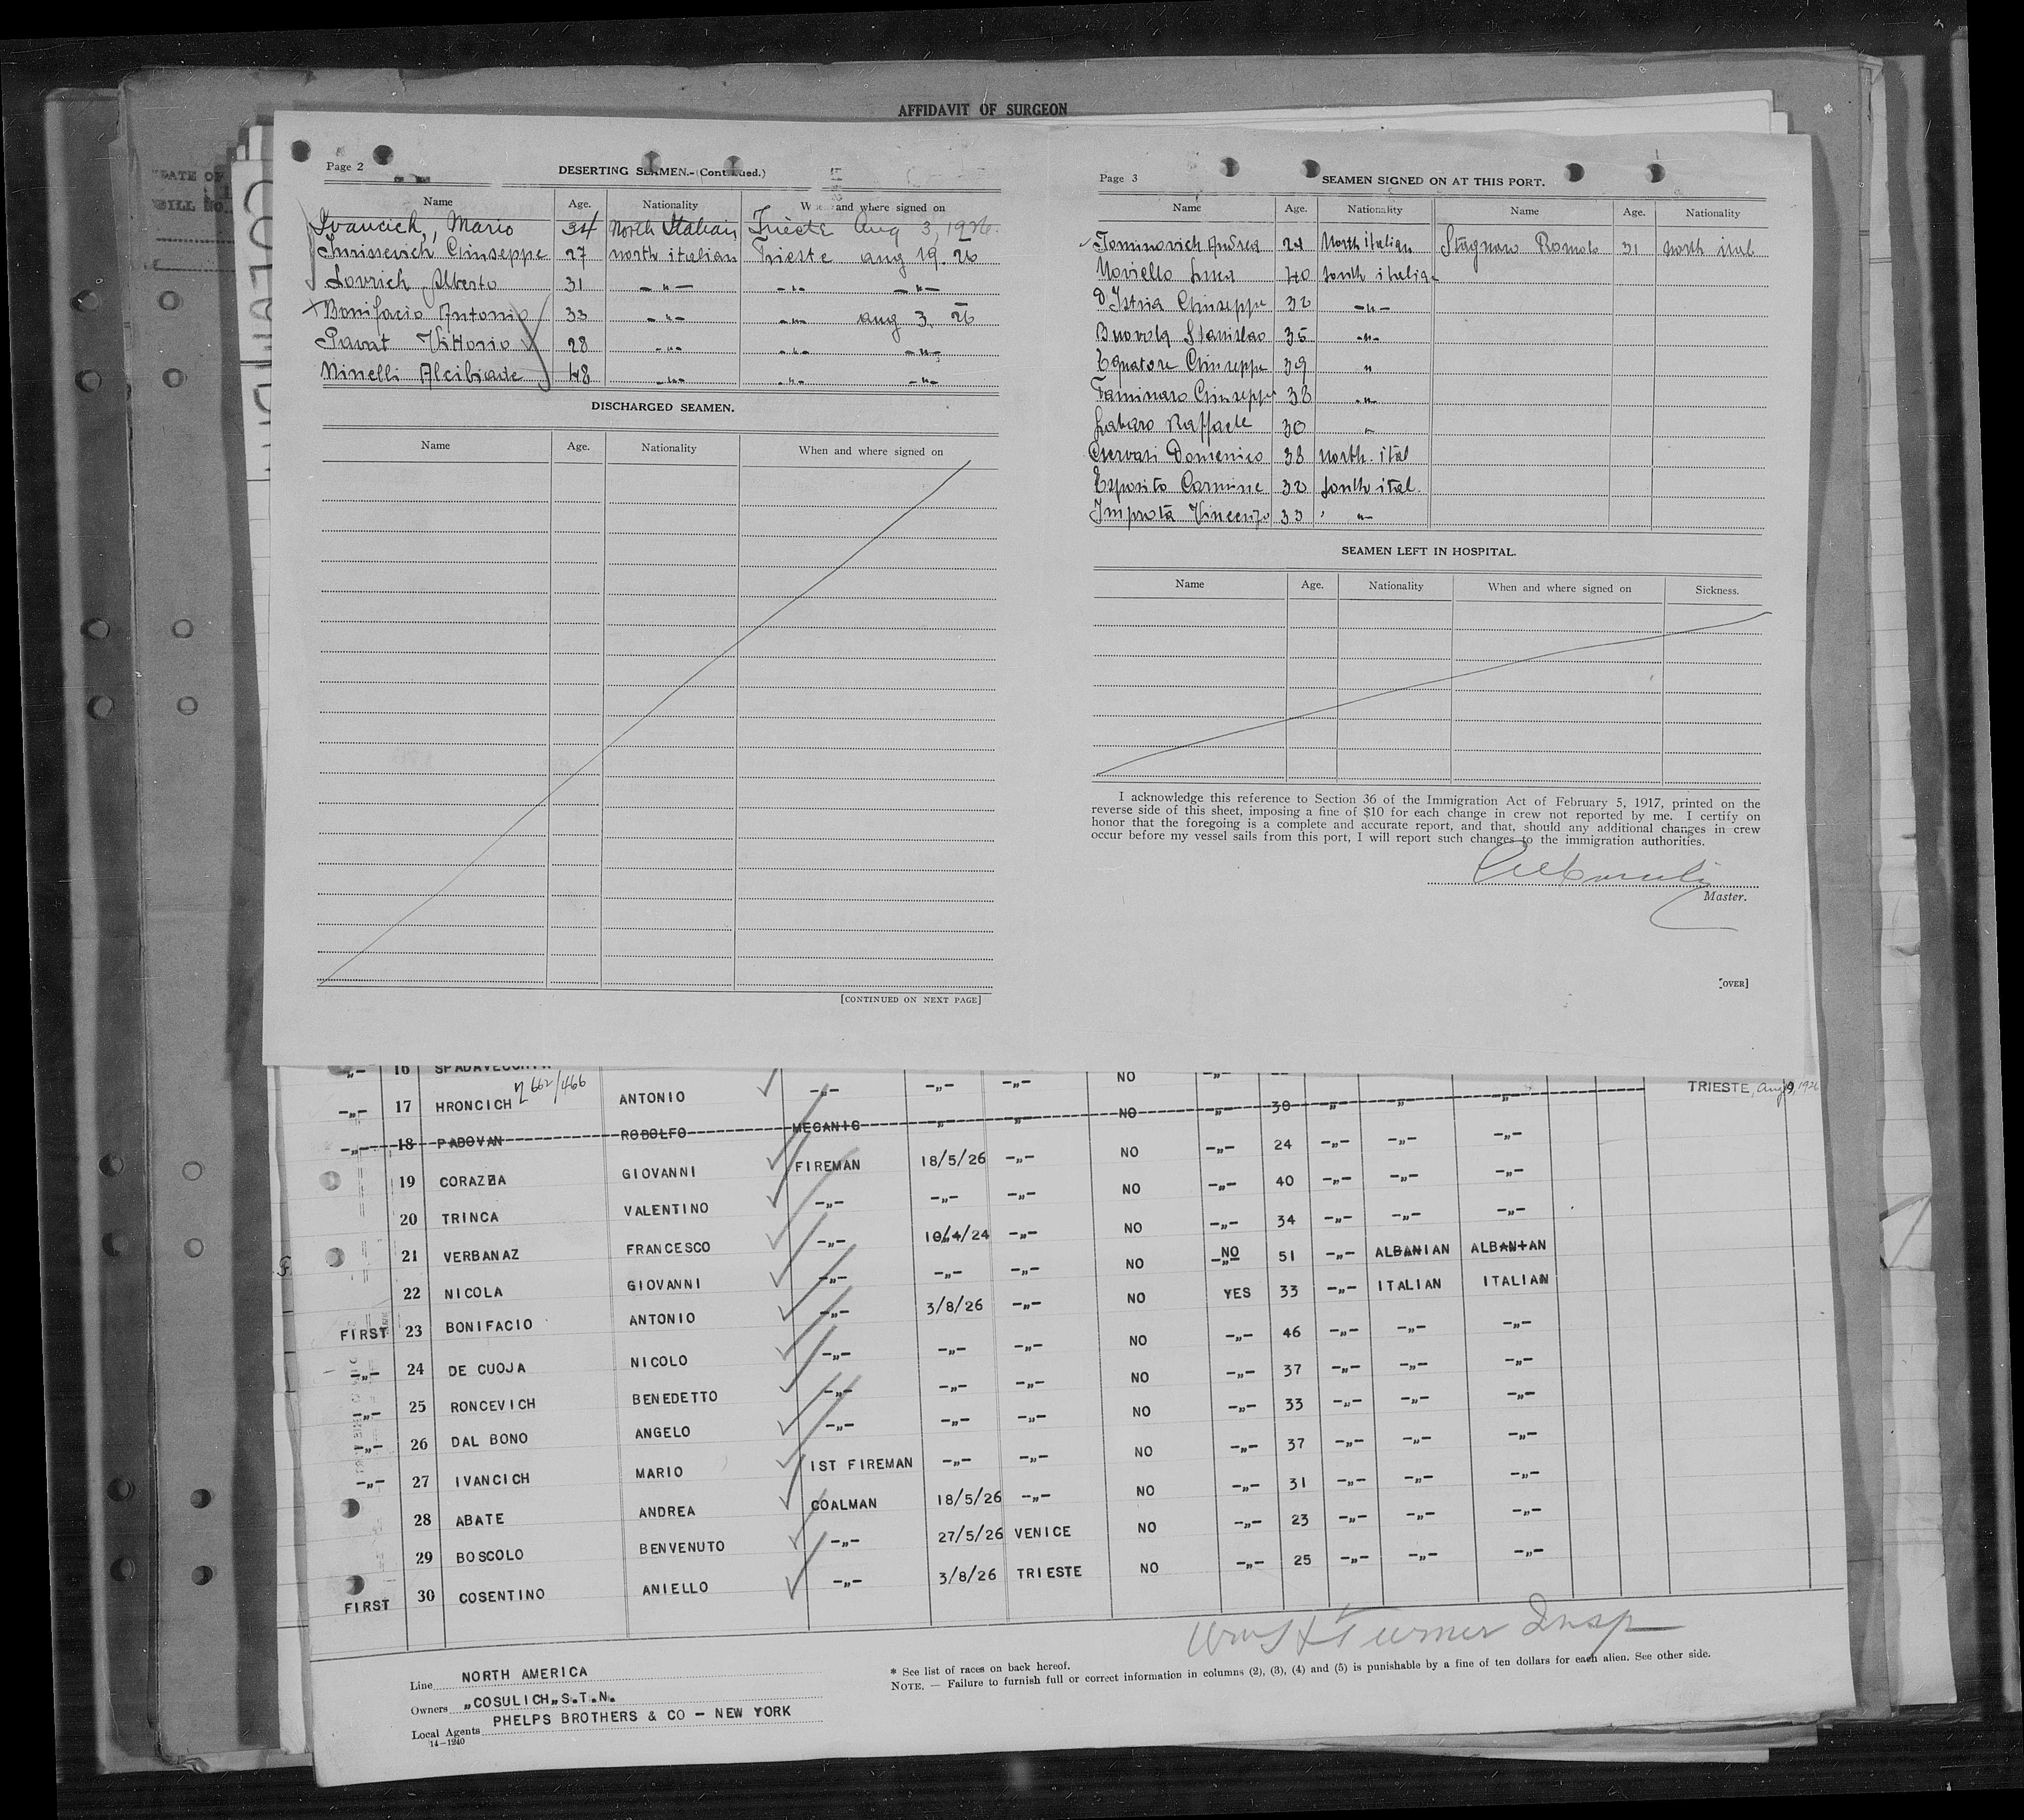 AFFIDAVIT OF SURGEON
Page 2
DESERTING SEAMEN.-(Continued.)
Name Age. Nationality When and where signed on
Ivancich, Mario 34 North Italian Trieste Aug 3, 1926.
Iurissevich Giuseppe 27 north italian Trieste aug 19. 26
Lovrich Alberto 31 -"- -"- -"-
Bonifacio Antonio 33 -"- -"- aug 3. 26
Pavat Vittorio 28 -"- -"- -"-
Ninelli Alcibiade 48 -"- -"- -"-
DISCHARGED SEAMEN.
Name Age. Nationality When and where signed on
[CONTINUED ON NEXT PAGE]
Page 3
SEAMEN SIGNED ON AT THIS PORT.
Name Age. Nationality Name Age. Nationality
Tominovich Andrea 24 North italian Stagnaro Romolo 31 north ital
Noviello Luca 40 south italian
D'Istria Giuseppe 32 -"-
Buovola Stanislao 35 -"-
Giuseppe 39 "
Taminaro Giuseppe 38 -"-
Labaro Raffaele 30 "
Gervasi Domenico 38 north. ital
Esposito Carmine 32 south ital.
Improta Vincenzo 33 ' -"-
SEAMEN LEFT IN HOSPITAL.
Name Age. Nationality When and where signed on Sickness.
I acknowledge this reference to Section 36 of the Immigration Act of February 5, 1917, printed on the
reverse side of this sheet, imposing a fine of $10 for each change in crew not reported by me. I certify on
honor that the foregoing is a complete and accurate report, and that, should any additional changes in crew
occur before my vessel sails from this port, I will report such changes to the immigration authorities.
Master.
[OVER]
-"- 16 SPADAVECCHIA -"- -"- NO -"-
-"- 17 HRONCICH 2662/466 ANTONIO -"- -"- -"- NO -"- TRIESTE, Aug 19, 1926
-"- 18 PADOVAN RODOLFO MECANIC -"- -"- NO -"- 30 -"- -"- -"-
19 CORAZZA GIOVANNI FIREMAN 18/5/26 -"- NO -"- 24 -"- -"- -"-
20 TRINCA VALENTINO -"- -"- -"- NO -"- 40 -"- -"- -"-
21 VERBANAZ FRANCESCO -"- 10/4/24 -"- NO -"- 34 -"- -"- -"-
22 NICOLA GIOVANNI -"- -"- -"- NO NO -"- 51 -"- ALBANIAN ALBANIAN
FIRST 23 BONIFACIO ANTONIO -"- 3/8/26 -"- NO YES 33 -"- ITALIAN ITALIAN
-"- 24 DE CUOJA NICOLO -"- -"- -"- NO -"- 46 -"- -"- -"-
-"- 25 RONCEVICH BENEDETTO -"- -"- -"- NO -"- 37 -"- -"- -"-
-"- 26 DAL BONO ANGELO -"- -"- -"- NO -"- 33 -"- -"- -"-
-"- 27 IVANCICH MARIO 1ST FIREMAN -"- -"- NO -"- 37 -"- -"- -"-
28 ABATE ANDREA COALMAN 18/5/26 -"- NO -"- 31 -"- -"- -"-
29 BOSCOLO BENVENUTO -"- 27/5/26 VENICE NO -"- 23 -"- -"- -"-
FIRST 30 COSENTINO ANIELLO -"- 3/8/26 TRIESTE NO -"- 25 -"- -"- -"-
Wm H Turner Insp
Line NORTH AMERICA
Owners "COSULICH"S.T.N.
Local Agents PHELPS BROTHERS & CO - NEW YORK
14-1240
* See list of races on back hereof.
NOTE. — Failure to furnish full or correct information in columns (2), (3), (4) and (5) is punishable by a fine of ten dollars for each alien. See other side.